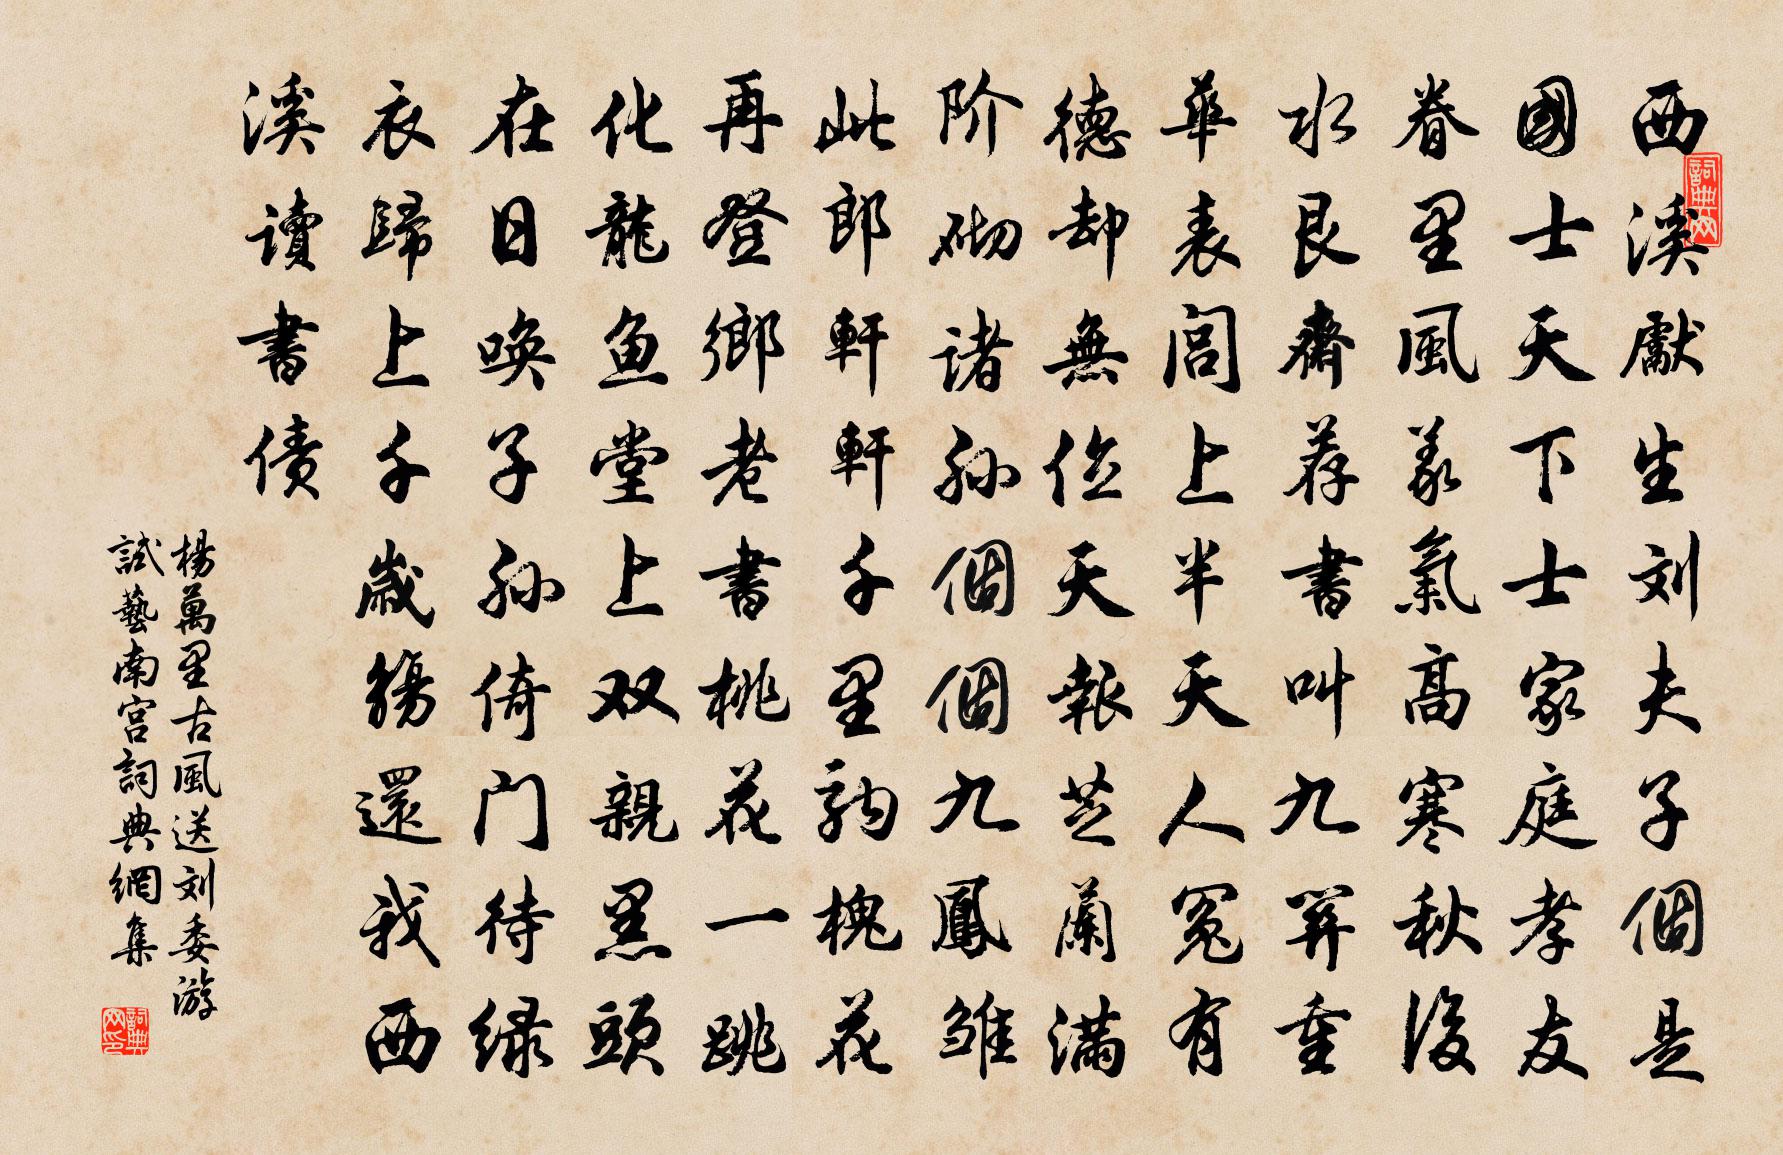 西溪獻生刘夫子個是
國士天下士家庭孝友
眷里風義氣高寒秋後
水艮齋荐書叫九關重
華表閭上半天人冤有
德却無位天報芝蘭滿
阶砌諸孙個個九鳳雏
此郎軒軒千里駒槐花
再登鄉老書桃花一跳
化龍鱼堂上双親黑頭
在日唤子孙倚门待绿
衣歸上千歲觴還我西
溪讀書债
楊萬里古風送刘委游
試藝南宫詞典網集